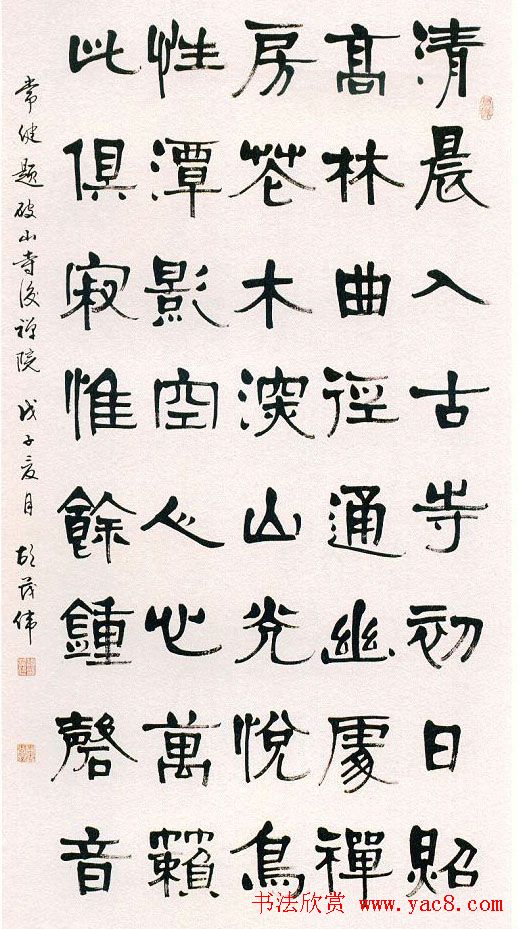 清晨入古寺初日照
高林曲徑通幽處禪
房花木深山光悅鳥
性潭影空人心萬籟
此俱寂惟餘鍾磬音
常健題破山寺後禅院 戊子夏月 胡茂伟
书法欣赏 www.yac8.com